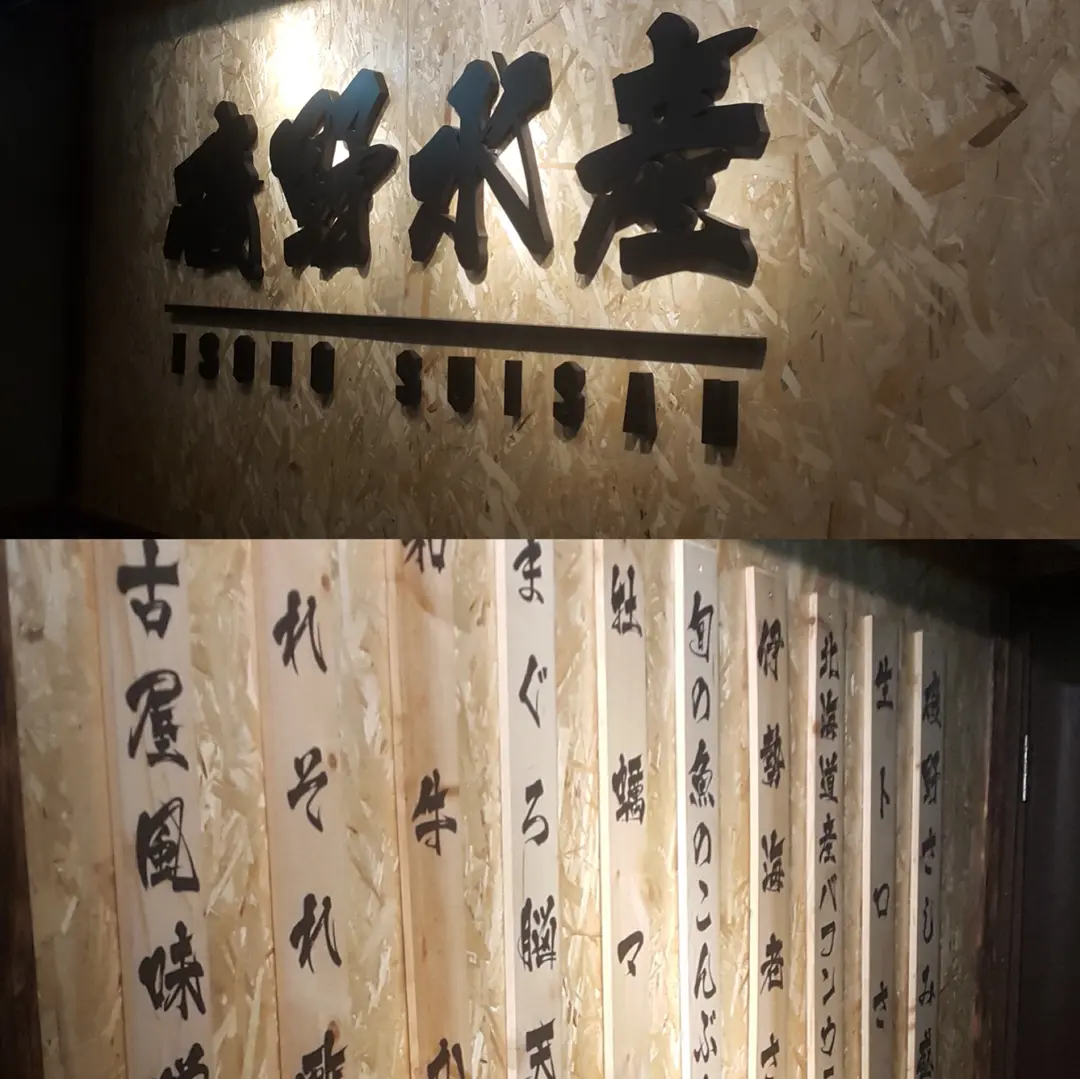 磯野水産
ISONO SUISAN
磯野さしみ盛
生トロさ
北海道産バフンウ
伊勢海老さ
旬の魚のこんぶ
牡蠣マ
まぐろ脳天
和牛か
れそれ
古屋風味